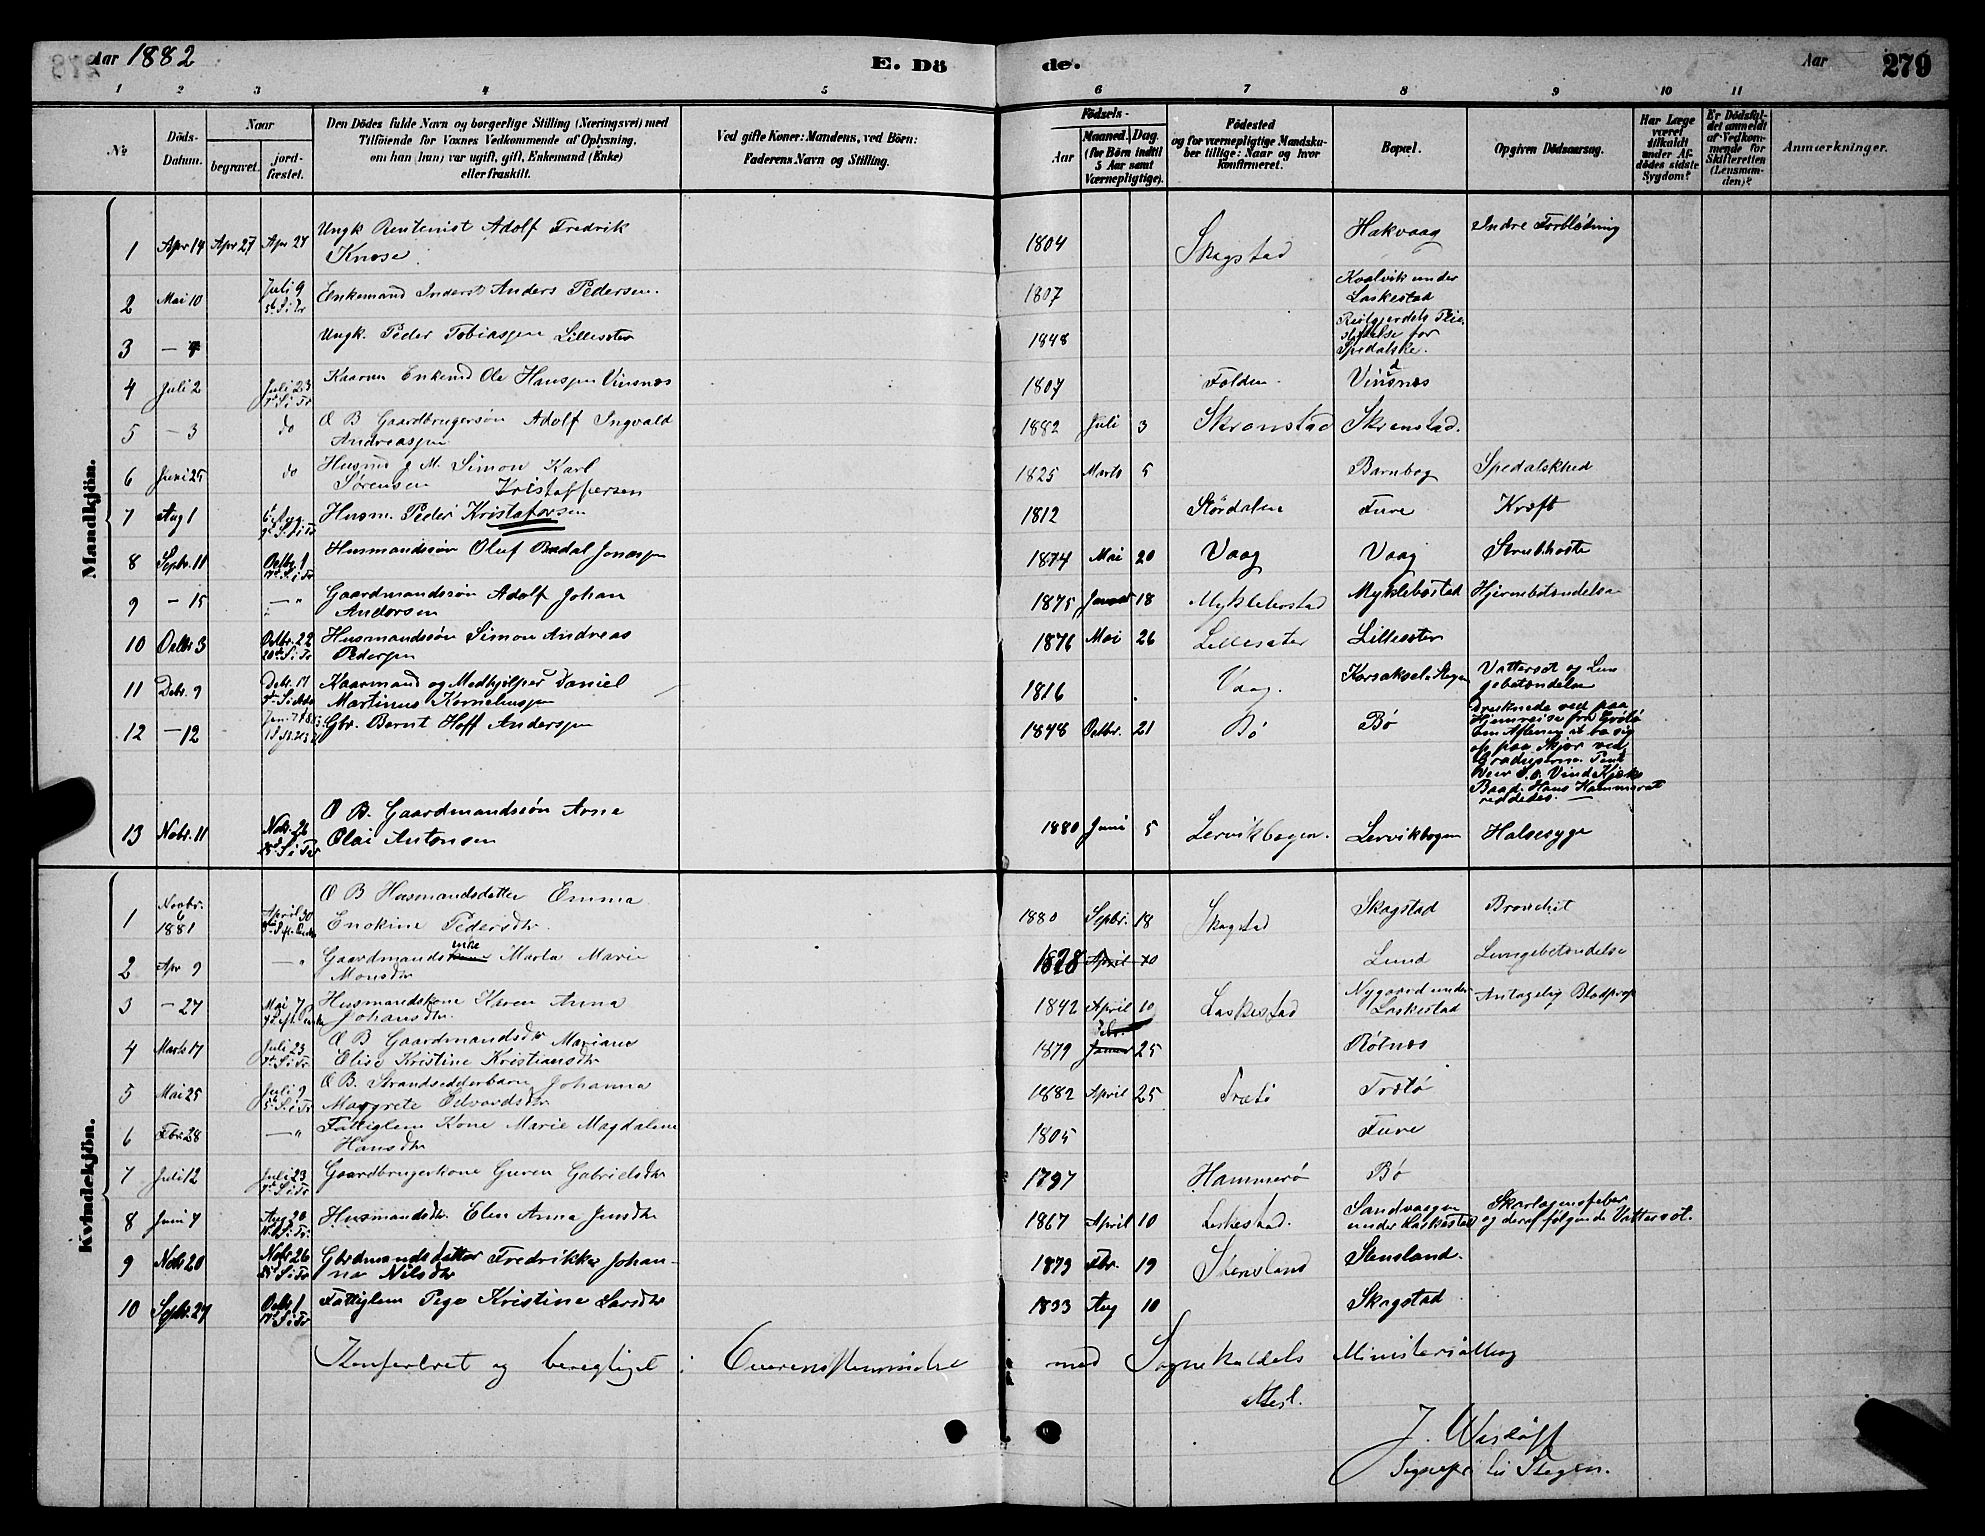 Aar 1882
E. Dö
de.
Aar
279
1 2 3 4 5 6 7 8 9 10 11
No.
Döds-
Datum.
Naar
begravet.
jord-
fæstet.
Den Dödes fulde Navn og borgerlige Stilling (Næringsvei) med
Tilföiende for Voxnes Vedkommende af Oplysning,
om han (hun) var ugift, gift, Enkemand (Enke)
eller fraskilt.
Ved gifte Koner: Mandens, ved Börn:
Faderens Navn og Stilling.
Födsels-
Aar
Maaned. Dag.
(for Börn indtil
5 Aar samt
Værnepligtige).
Födested
og for værnepligtige Mandsku-
ber tillige: Naar og hvor
konfirmeret.
Bopæl.
Opgiven Dödsaarsag.
Har Læge
været
tilkaldt
under Af-
dödes sidste
Sygdom?
Er Dödsfal-
det anmeldt
af Vedkom-
mende for
Skifteretten
(Lensman-
den)?
Anmærkninger.
Mandkjön.
1 Apr 14 Apr 27 Apr 27 Ungk Rentenist Adolf Fredrik
Knose. 1804 Skagstad Hakvaag Indre Forblødning
2 Mai 10 Juli 9 Enkemand Inderst Anders Pedersen. 1807 Kvalvik under
Laskestad
3 Ungk. Peder Tobiassen Lillesæter 1848 Reitgjerdets Pleie-
stiftelse for
Spedalske.
4 Juli 2 Juli 23 Kaarm Enkemd Ole Hanssen Vinsnes 1807 Folden. Vinsnes
5 – 3 do O B Gaardbrugersøn Adolf Ingvald
Andreassen 1882 Juli 3 Skranstad Skranstad.
6 Juni 25 do Husmd g M. Simon Karl
Sørensen 1825 Marts 5 Spedalskhed
Kristoffersen
7 Aug 1 Husm. Peder Kristofersen 1812 Størdalen Fure Kræft
8 Septr. 11 Octbr. 1 Husmandssøn Oluf Bødal Jonassen 1874 Mai 20 Vaag Vaag Strubehoste
9 – 15 – " Gaardmandssøn Adolf Johan
Andersen 1875 18 Myklebostad Myklebostad Hjernebetændelse
10 Octbr 3 Octbr. 22 Husmandssøn Simon Andreas
Pedersen 1876 Mai 26 Lillesæter Lillesæter
11 Debr. 9 Debr. 17 Kaarmand og Medhjelper Daniel
Martinus Korneliussen 1816 Vaag. Korsaksel. Stegen Vattersot og Lun-
gebetændelse
12 – 12 Gbr. Bernt Hoff Anderssen 1848 Octbr. 21 Bø Bø Druknede ved paa
Hjemreise fra Grøtø
op paa Skjær ved
Baad. Hans Kammerat
reddedes. —
13 Nobr. 11 Nobr. 26 O B. Gaardmandssön Arne
Olai Antonsen 1880 Juni 5 Lervikbogen. Lervikbogen Halsesyge
Kvindekjön.
1 Novbr.
6
1881 April 30 O B Husmandsdatter Emma
Enokine Pedersdtr. 1880 Septbr. 18 Skagstad Skagstad Bronchit
2 Apr 9 – " Gaardmandskone enke Marta Marie
Monsdtr 1828 April 10 Lund Lungebetændelse
3 – 27 Mai 7 Husmandskone Karen Anna
Johansdtr. 1842 April 10 Laskestad Nygaard under
Laskestad Antagelig Blodprop
4 Marts 17 Juli 23 O B Gaardmandsdtr Mariane
Elise Kristine Kristiansdtr 1879 Febr. Januar 25 Røtnes
5 Mai 25 Juli 9 O B. Strandsidderbarn Johanna
Margrete Edvardsdtr 1882 April 25 Trætø Trætø
6 Fbr. 28 – " Fattiglem Kone Marie Magdalene
Hansdtr 1805 Fure
7 Juli 12 Juli 23 Gaardbrugerkone Guren Gabrielsdtr 1797 Hammerø Bø
8 Juni 7 Aug 20 Husmandsdtr. Elen Anna Jensdtr 1867 April 10 Laskestad. Sandvaagen
under Laskestad Skarlagensfeber
og deraf følgende Vattersot.
9 Nobr 20 Nobr 26 Gbrdmandsdatter Fredrikke Johan-
na Nilsdtr 1879 Fbr. 19 Stensland Stensland.
10 Septbr. 27 Octbr 1 Fattiglem Pige Kristine Larsdtr 1833 Aug 10 Skagstad
Konfereret og berigtiget i Overensstemmelse med Sognekaldets Ministerialbog
Attest.
J. Wisløff
Sognepr. til Stegen.